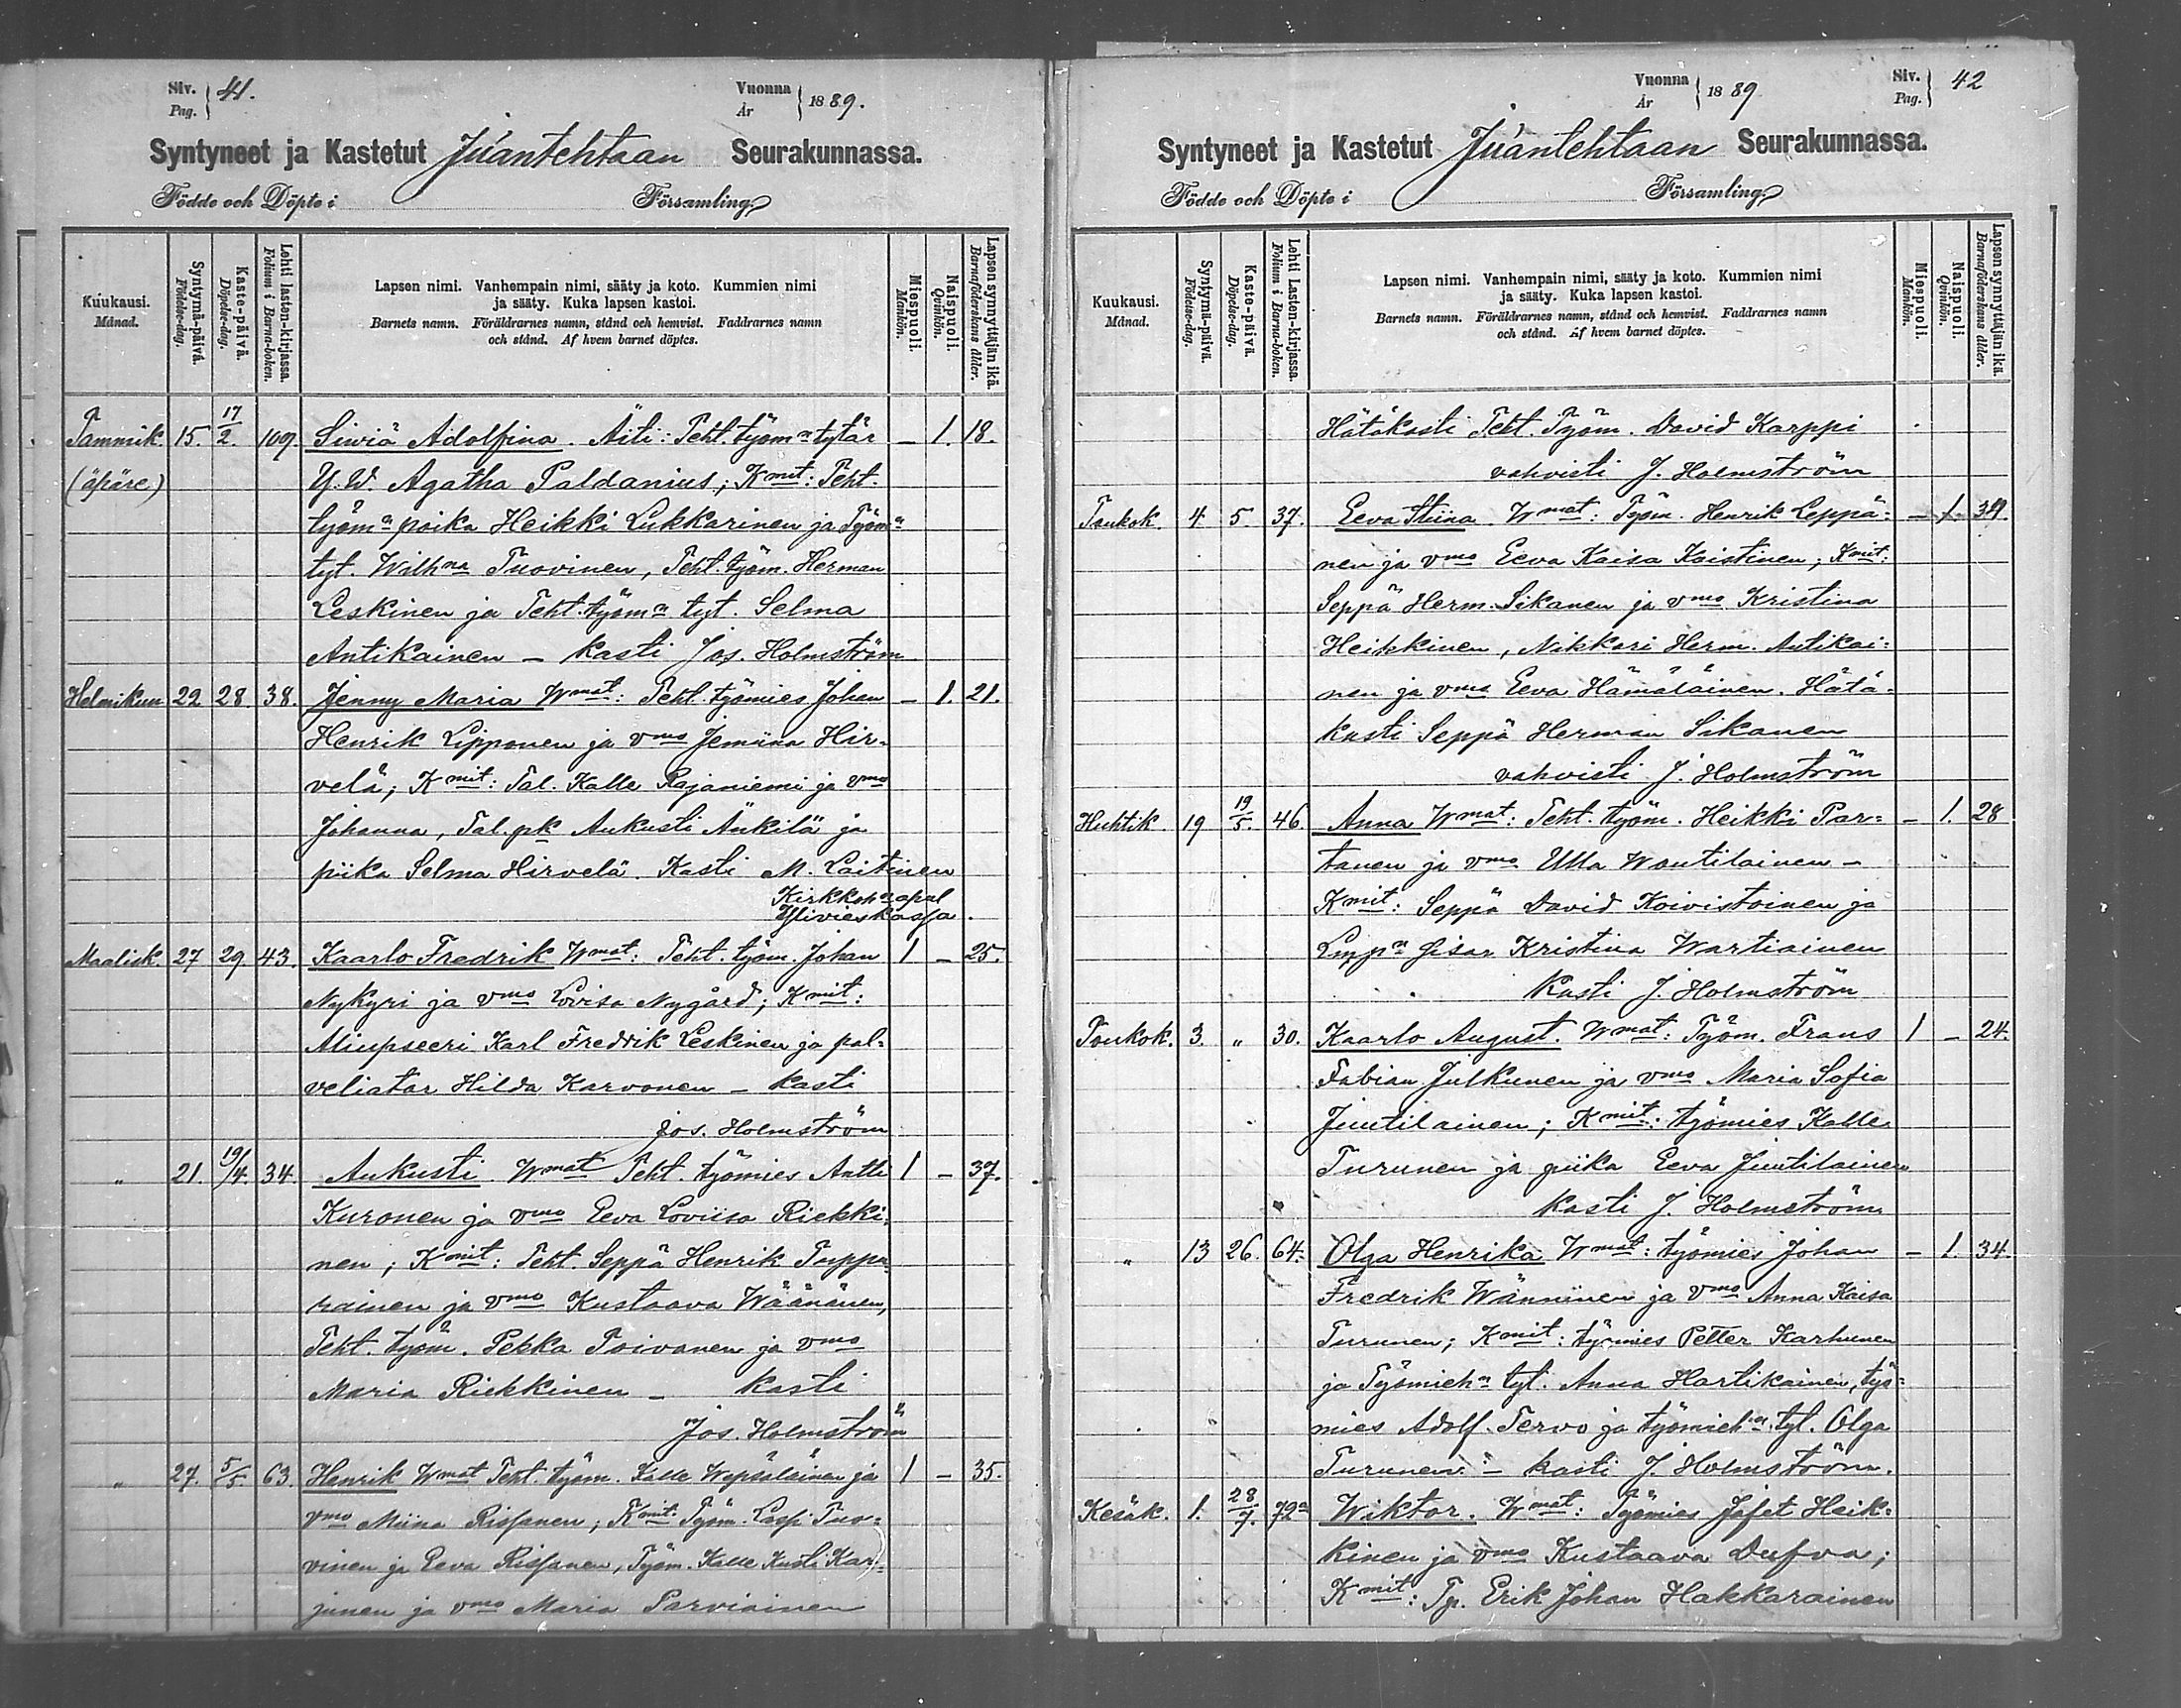 Siv. Pag. 41.
Vuonna År 1889.
Syntyneet ja Kastetut Juantehtaan Seurakunnassa.
Födde och Döpte i Församling
Kuukausi. Månad.
Syntymä-päivä. Födelse-dag.
Kaste-päivä. Döpelse-dag.
Lehti lasten-kirjassa. Folium i Barna-boken.
Lapsen nimi. Vanhempain nimi, sääty ja koto. Kummien nimi
ja sääty. Kuka lapsen kastoi.
Barnets namn. Föräldrarnes namn, stånd och hemvist. Faddrarnes namn
och stånd. Af hvem barnet döptes.
Miespuoli. Mankön.
Naispuoli. Qvinkön.
Lapsen synnyttäjän ikä. Barnaföderskans ålder.
Tammik. 15. 17/2. 109. Siwiä Adolfina. Äiti: Teht. työmn tytär – 1. 18.
(äpäre) Y. W. Agatha Paldanius; Kmit: Teht.
työmn poika Heikki Lukkarinen ja Työmn
tyt. Wilhna Tuovinen, Teht. työm. Herman
Leskinen ja Teht. työmn tyt. Selma
Antikainen – Kasti Jos. Holmström
Helmikuu 22 28 38. Jenny Maria Wmat: Teht. työmies Johan – 1. 21.
Henrik Lipponen ja vmo Jemiina Hir-
velä; Kmit: Tal. Kalle Rajaniemi ja vmo
Johanna, Tal. pk Aukusti Änkilä ja
piika Selma Hirvelä. Kasti M. Laitinen
Kirkkoh:n apul
Ylivieskassa.
Maalisk. 27 29. 43. Kaarlo Fredrik Wmat: Teht. työm. Johan 1 – 25.
Nykyri ja vmo Lovisa Nygård; Kmit:
Aliupseeri Karl Fredrik Leskinen ja pal-
veliatar Hilda Karvonen – Kasti
Jos. Holmström
" 21. 19/4. 34. Aukusti. Wmat Teht. työmies Antti 1 – 37.
Kuronen ja vmo Eeva Loviisa Riekki-
nen; Kmit: Teht. Seppä Henrik Tuppu-
rainen ja vmo Kustaava Wäänänen,
Teht. työm. Pekka Toivanen ja vmo
Maria Riekkinen – Kasti
Jos. Holmström
" 27. 5/5. 63. Henrik Wmat Teht. työm. Kalle Wepsäläinen ja 1 – 35.
vmo Miina Rissanen; Kmit: Työm. Lassi Tuo-
vinen ja Eeva Rissanen, Työm. Kalle Kusti Kar-
junen ja vmo Maria Parviainen
Vuonna År 1889
Siv. Pag. 42
Syntyneet ja Kastetut Juantehtaan Seurakunnassa.
Födde och Döpte i Församling
Kuukausi. Månad.
Syntymä-päivä. Födelse-dag.
Kaste-päivä. Döpelse-dag.
Lehti Lasten-kirjassa. Folium i Barna-boken.
Lapsen nimi. Vanhempain nimi, sääty ja koto. Kummien nimi
ja sääty. Kuka lapsen kastoi.
Barnets namn. Föräldrarnes namn, stånd och hemvist. Faddrarnes namn
och stånd. Af hvem barnet döptes.
Miespuoli. Mankön.
Naispuoli. Qvinkön.
Lapsen synnyttäjän ikä. Barnaföderskans ålder.
Hätäkasti Teht. Työm. David Karppi
vahvisti J. Holmström
Toukok. 4. 5. 37. Eeva Stiina. Wmat: Työm. Henrik Leppä- – 1.
nen ja vmo Eeva Kaisa Koistinen; Kmit:
Seppä Herm. Sikanen ja vmo Kristina
Heikkinen, Nikkari Herm. Antikai-
nen ja vmo Eeva Hämäläinen. Hätä-
kasti Seppä Herman Sikanen
vahvisti J. Holmström
Huhtik. 19 19/5. 46. Anna Wmat: Teht. työm. Heikki Par- – 1. 28
tanen ja vmo Ulla Woutilainen –
Kmit: Seppä David Koivistoinen ja
sisar Kristina Wartiainen
Kasti J. Holmström
Toukok. 3. " 30. Kaarlo August. Wmat: Työm. Frans 1 – 24.
Fabian Julkunen ja vmo Maria Sofia
Juutilainen; Kmit: työmies Kalle
Turunen ja piika Eeva Juutilainen
Kasti J. Holmström
" 13 26. 64. Olga Henrika Wmat: työmies Johan – 1. 34.
Fredrik Wänninen ja vmo Anna Kaisa
Turunen; Kmit: työmies Petter Karhunen
ja Työmiehn tyt. Anna Hartikainen, työ-
mies Adolf Tervo ja työmiehn tyt. Olga
Turunen – Kasti J. Holmström.
Kesäk. 1. 28/7. 72a Wiktor. Wmat: Työmies Jafet Heik-
kinen ja vmo Kustaava Dufva;
Kmit: Tp. Erik Johan Hakkarainen